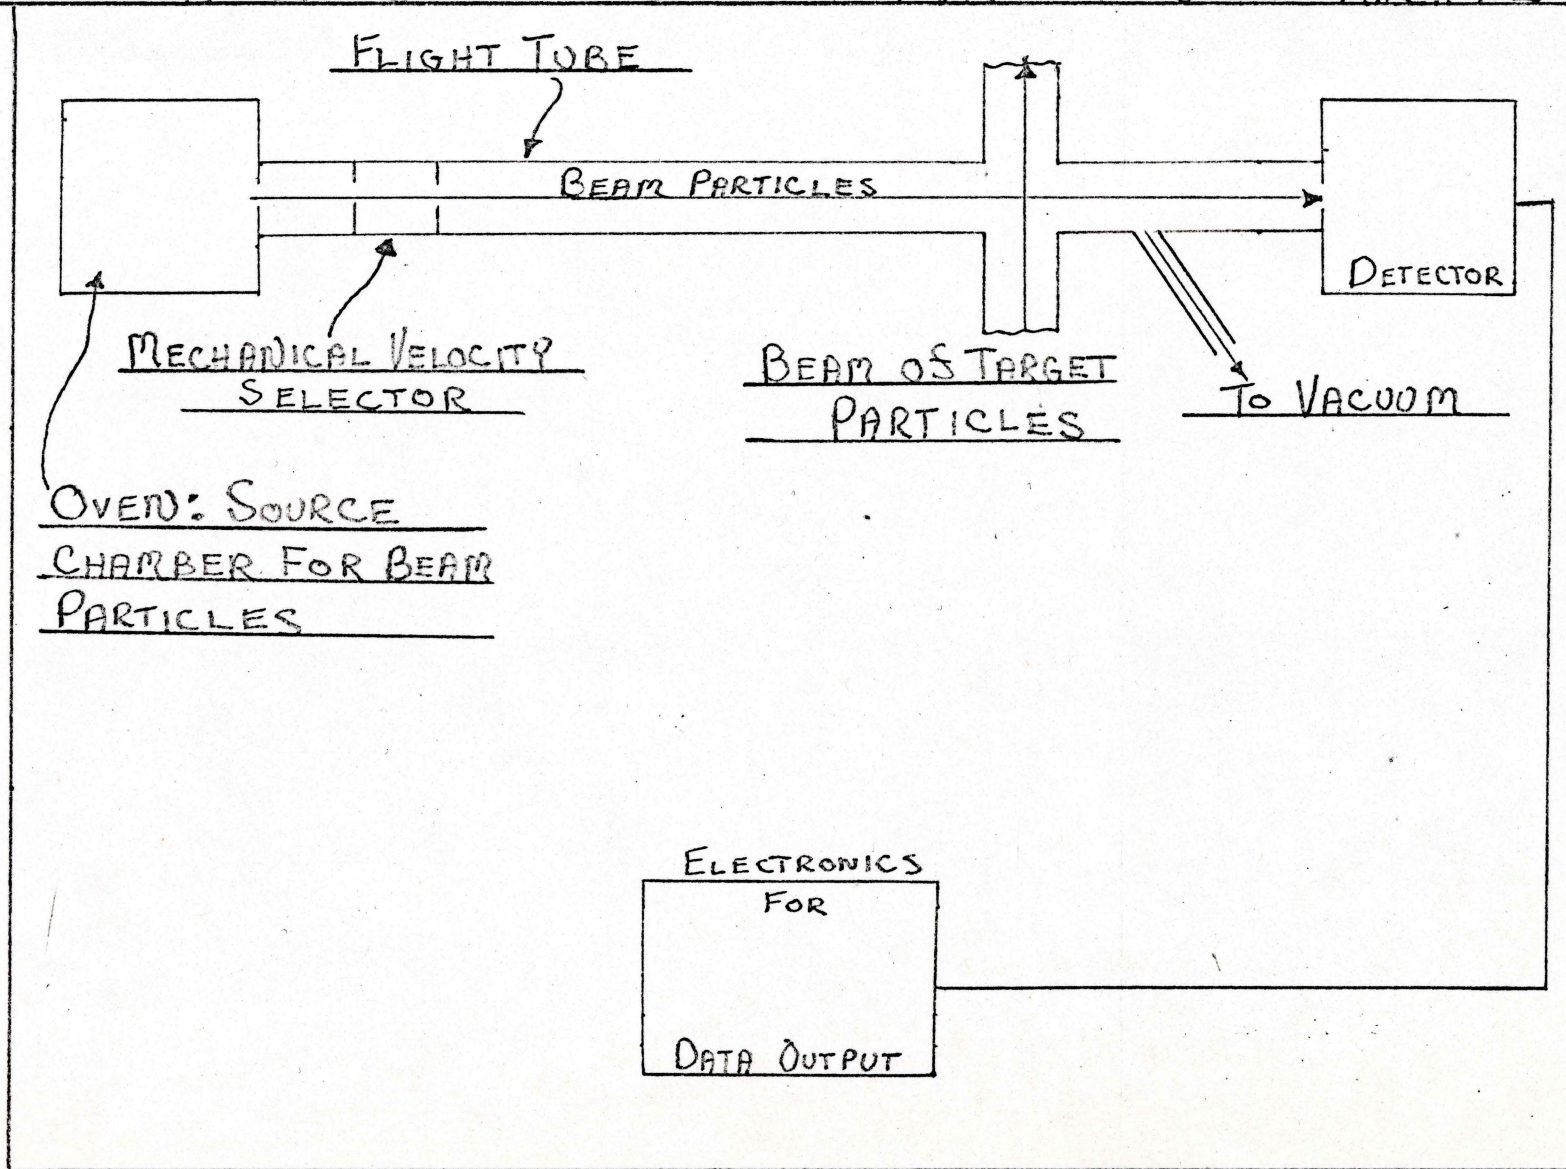 FLIGHT TUBE
BEAM PARTICLES
DETECTOR
MECHANICAL VELOCITY
SELECTOR
BEAM OF TARGET
PARTICLES
TO VACUUM
OVEN: SOURCE
CHAMBER FOR BEAM
PARTICLES
ELECTRONICS
FOR
DATA OUTPUT